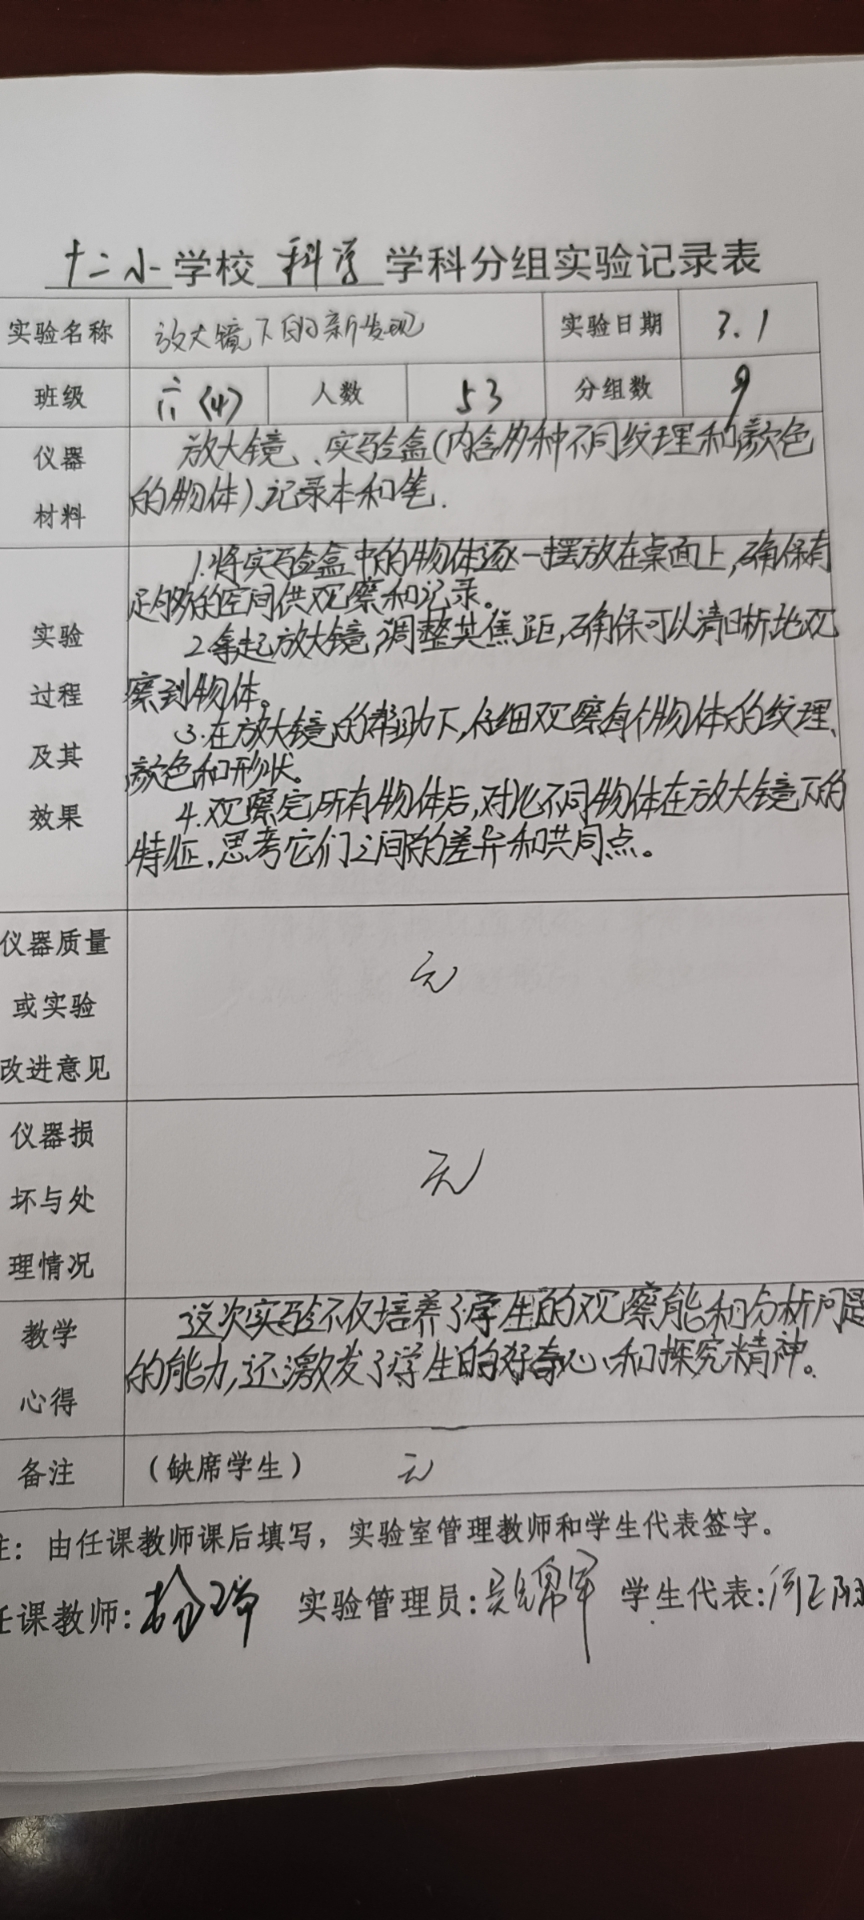 十二小学校 科学 学科分组实验记录表
实验名称 放大镜下的新发现 实验日期 3.1
班级 六(4) 人数 53 分组数 9
仪器材料 放大镜、实验盒(内含多种不同纹理和颜色
的物体)、记录本和笔.
实验过程及其效果
1.将实验盒中的物体逐一摆放在桌面上,确保有
足够的空间供观察和记录。
2.拿起放大镜,调整其焦距,确保可以清晰地观
察到物体。
3.在放大镜的帮助下,仔细观察每个物体的纹理、
颜色和形状。
4.观察完所有物体后,对比不同物体在放大镜下的
特征,思考它们之间的差异和共同点。
仪器质量或实验改进意见 无
仪器损坏与处理情况 无
教学心得 这次实验不仅培养了学生的观察能和分析问题
的能力,还激发了学生的好奇心和探究精神。
备注 (缺席学生) 无
注:由任课教师课后填写,实验室管理教师和学生代表签字。
任课教师: 实验管理员: 学生代表: